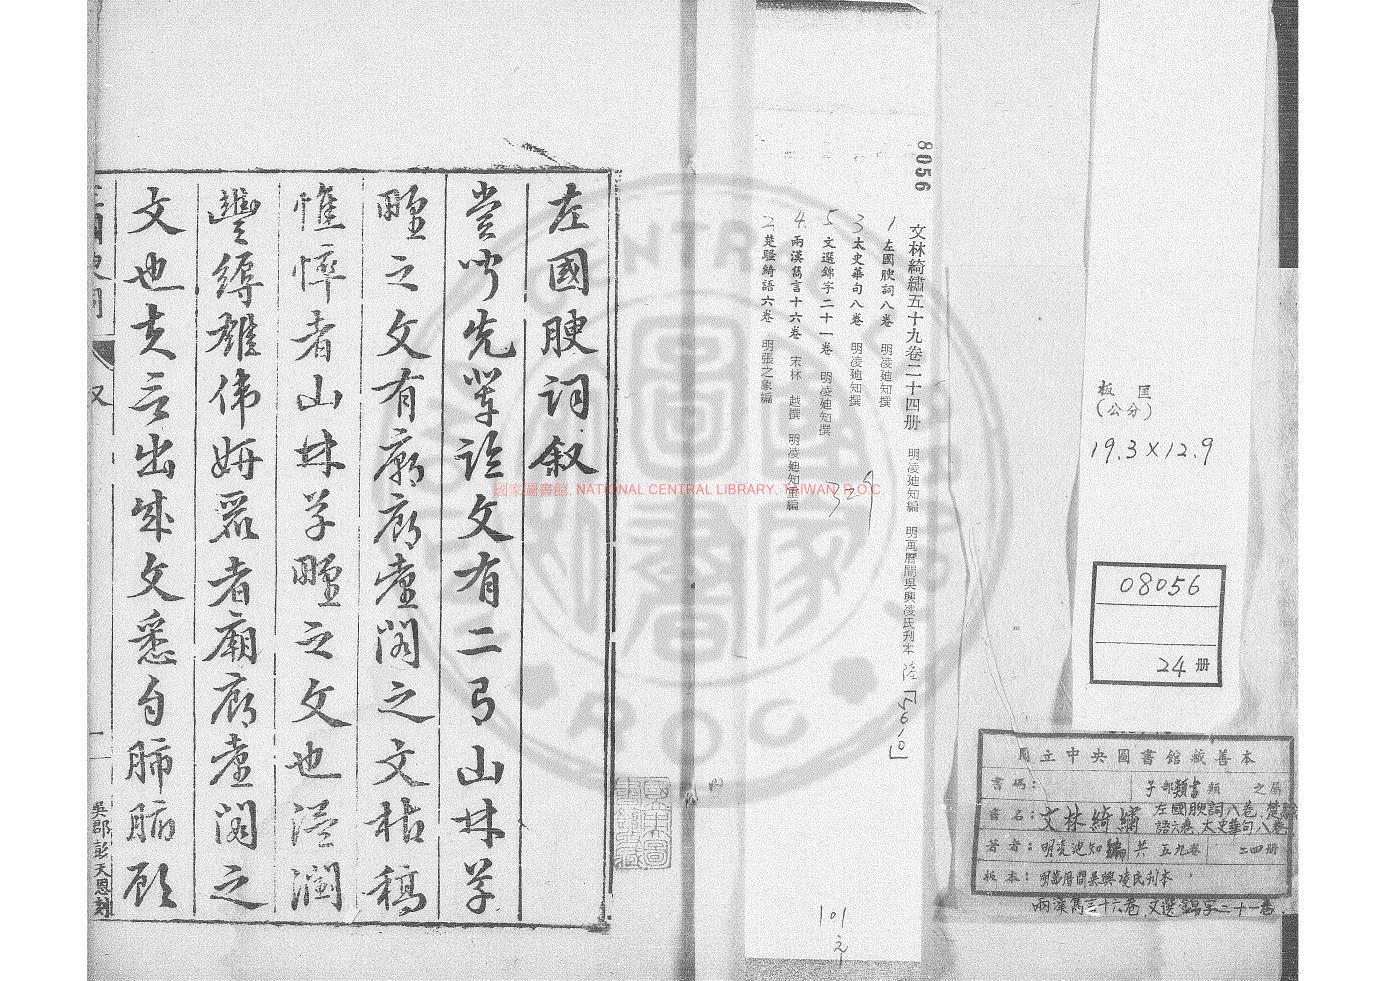 8056
文林綺繡五十九卷二十四册　明凌廸知編　明萬曆間吳興凌氏刊本
1 左國腴詞八卷　明凌廸知撰
3 太史華句八卷　明凌廸知撰
5 文選錦字二十一卷　明凌廸知撰
4 兩漢雋言十六卷　宋林　越撰　明凌廸知重編
2 楚騷綺語六卷　明張之象編
101
元
板匡
(公分)
19.3×12.9
08056
24册
國立中央圖書館藏善本
書碼：
子部類書類　之屬
書名：文林綺繡　左國腴詞八卷．楚騷
語六卷 太史華句八卷
著者：明凌廸知編　共五九卷　二四册
板本：明萬曆間吳興凌氏刊本
兩漢雋言十六卷．文選錦字二十一卷．
國家圖書館, NATIONAL CENTRAL LIBRARY, TAIWAN, R.O.C
CENTRAL
R.O.C
左國腴詞叙
嘗聞先輩論文有二曰山林草
野之文有廟廊臺閣之文枯槁
憔悴者山林草野之文也溫潤
豐縟雄偉妍麗者廟廊臺閣之
文也夫言出成文悉自肺腑顧
吳郡彭天恩刻